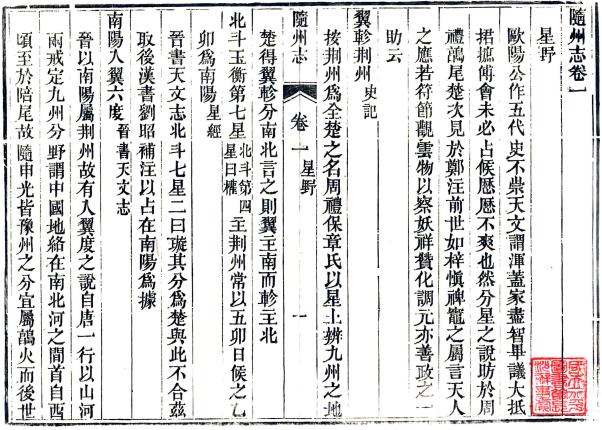 隨州志卷一
星野
歐陽公作五代史不祟天文謂渾蓋家盡智畢議大抵
捃摭傅會未必占候歷歷不爽也然分星之說昉於周
禮鶉尾楚次見於鄭注前世如梓愼裨竈之屬言天人
之應若符節觀雲物以察妖祥贊化調元亦善政之一
助云
翼軫荆州 史記
按荆州爲全楚之名周禮保章氏以星土辨九州之地
隨州志 卷一 星野 一
楚得翼軫分南北言之則翼主南而軫主北
北斗玉衡第七星 北斗第四星曰權 主荆州常以五卯日候之乙
卯爲南陽 星經
晉書天文志北斗七星二曰璇其分爲楚與此不合茲
取後漢書劉昭補注以占在南陽爲據
南陽入翼六度 晉書天文志
晉以南陽屬荆州故有入翼度之說自唐一行以山河
兩戒定九州分野謂中國地絡在南北河之間首自西
頃至於陪尾故隨申光皆豫州之分宜屬鶉火而後世